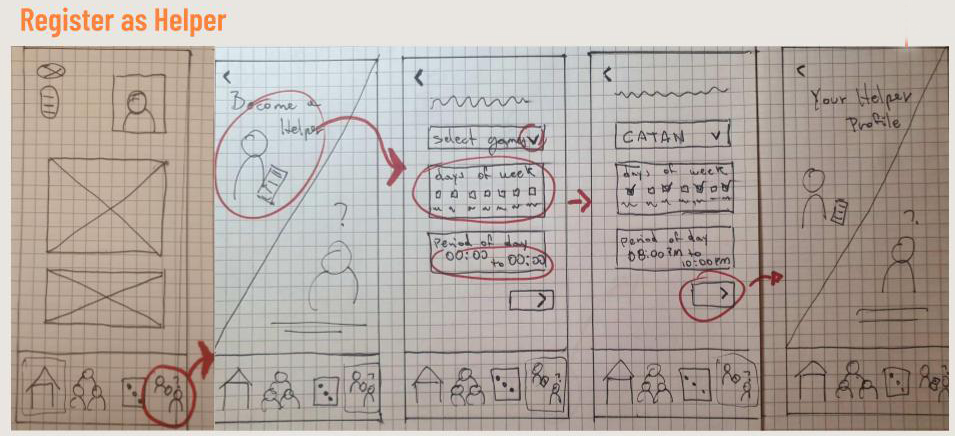 Register as Helper
<
Become a
Helper
?
<
select game v
days of week
Period of day
00:00
to 00:00
>
<
CATAN v
days of week
Period of day
08:00 Pm to
10:00 pm
>
<
Your Helper
Profile
?